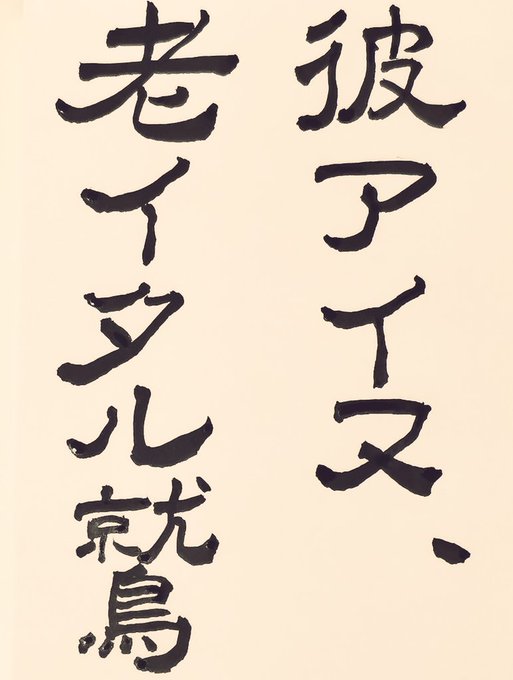 彼アイヌ、
老イタル鷲